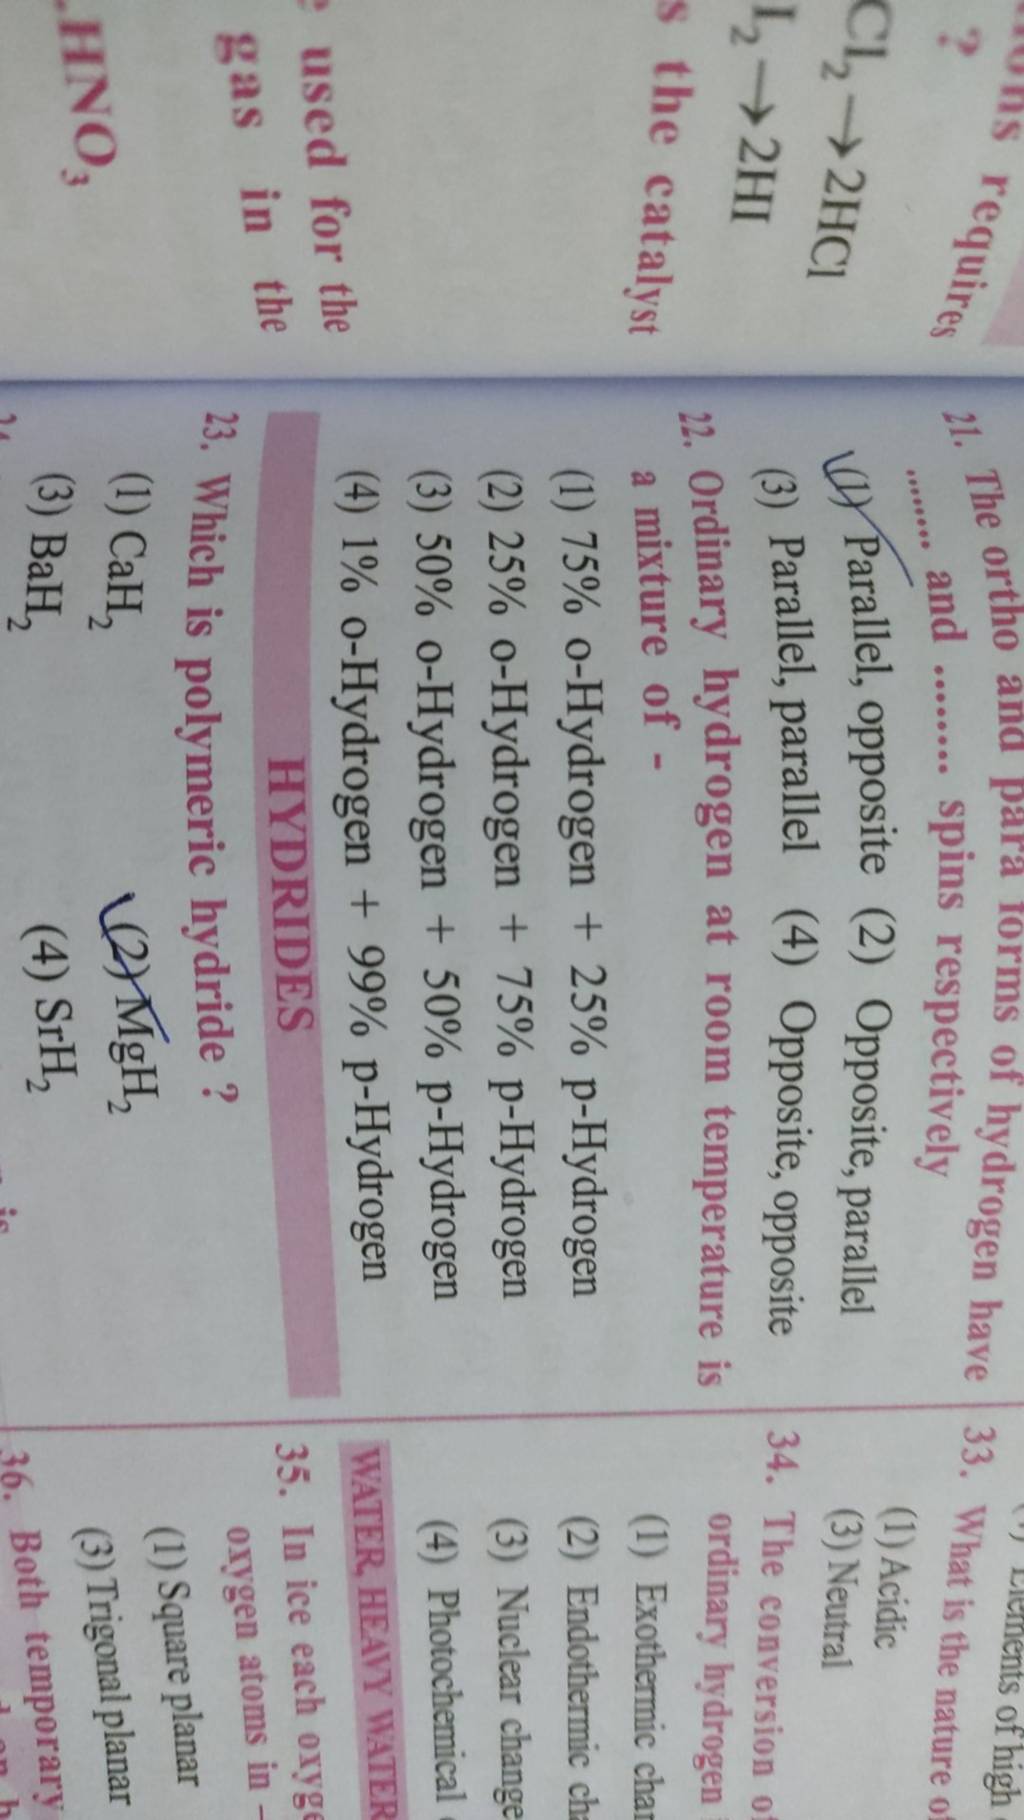 requires
?
Cl₂→2HCl
I₂→2HI
the catalyst
used for the
gas in the
HNO₃
21. The ortho and para forms of hydrogen have
........ and ........ spins respectively
(1) Parallel, opposite (2) Opposite, parallel
(3) Parallel, parallel (4) Opposite, opposite
22. Ordinary hydrogen at room temperature is
a mixture of -
(1) 75% o-Hydrogen + 25% p-Hydrogen
(2) 25% o-Hydrogen + 75% p-Hydrogen
(3) 50% o-Hydrogen + 50% p-Hydrogen
(4) 1% o-Hydrogen + 99% p-Hydrogen
HYDRIDES
23. Which is polymeric hydride ?
(1) CaH₂ (2) MgH₂
(3) BaH₂ (4) SrH₂
Elements of high
33. What is the nature
(1) Acidic
(3) Neutral
34. The conversion
ordinary hydrogen
(1) Exothermic
(2) Endothermic
(3) Nuclear change
(4) Photochemical
WATER, HEAVY WATER
35. In ice each
oxygen atoms in -
(1) Square planar
(3) Trigonal planar
36. Both temporary